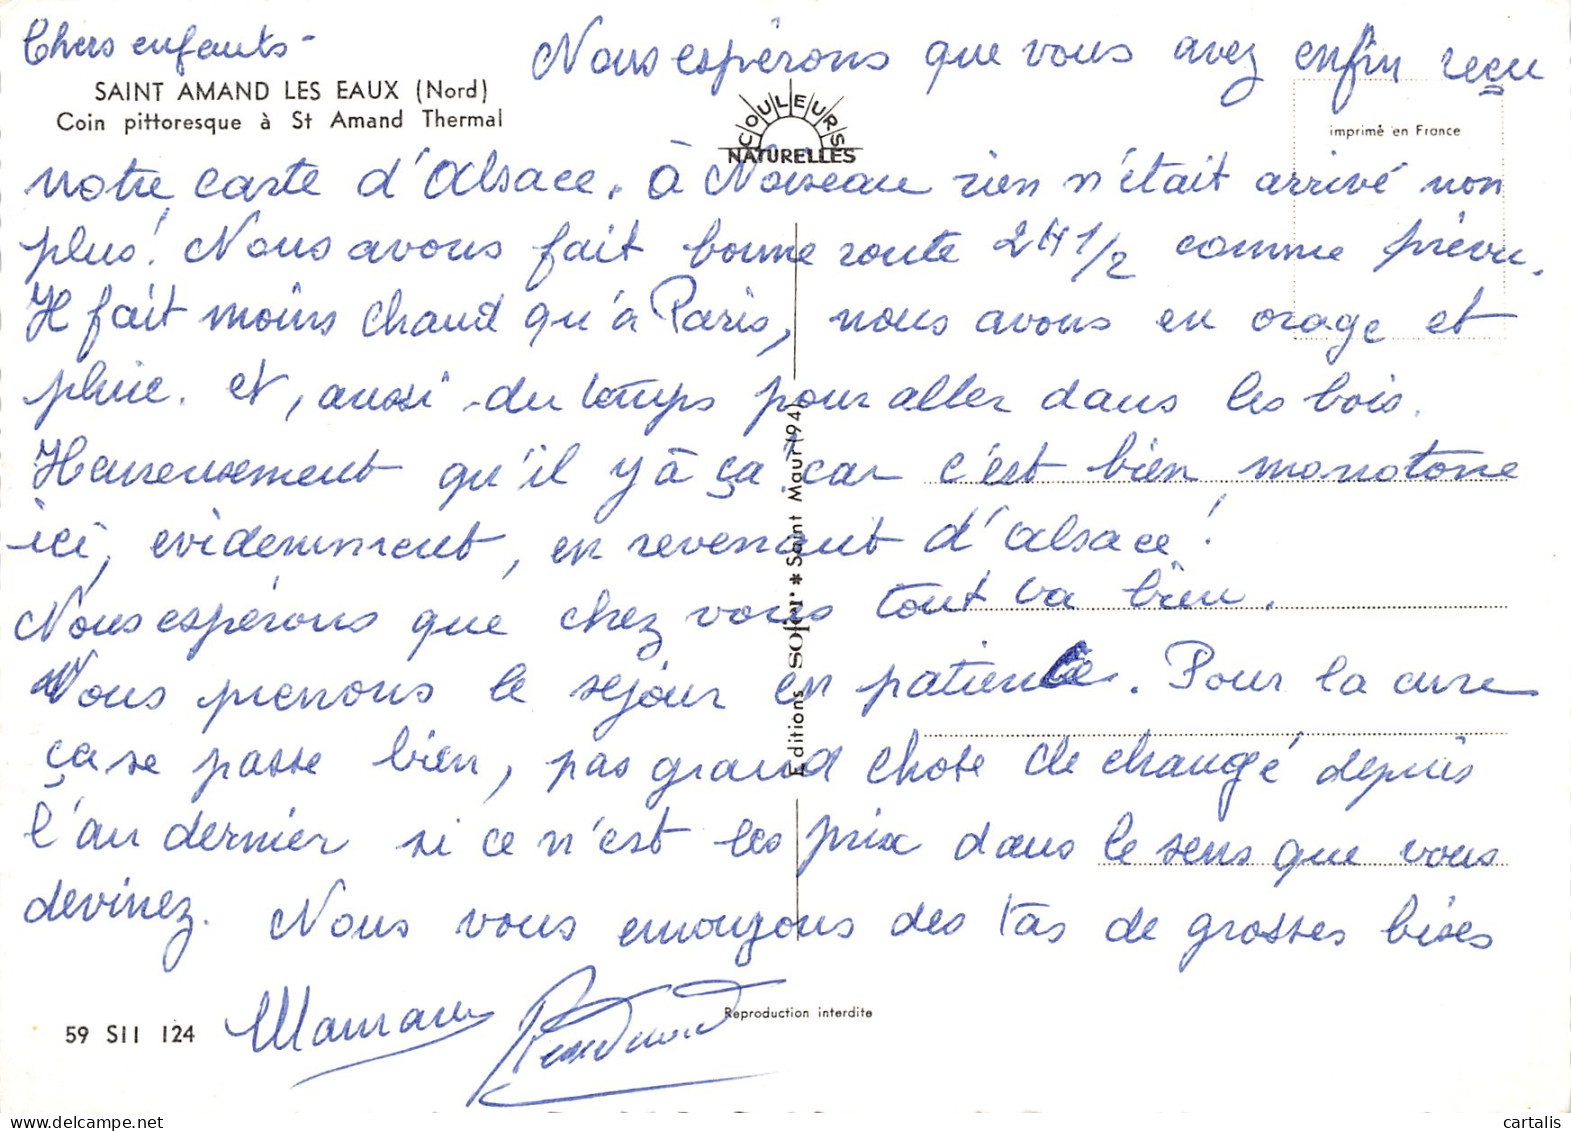 Chers enfants - Nous espérons que vous avez enfin reçu
SAINT AMAND LES EAUX (Nord)
Coin pittoresque à St Amand Thermal
COULEURS
NATURELLES
imprimé en France
notre carte d'Alsace. à Noiseau rien n'était arrivé non
plus! Nous avons fait bonne route 2H 1/2 comme prévu.
Il fait moins chaud qu'à Paris, nous avons eu orage et
pluie. et, aussi du temps pour aller dans les bois.
Heureusement qu'il y à ça car c'est bien monotone
ici, evidemment, en revenant d'Alsace!
Nous espérons que chez vous tout va bien.
Nous prenons le séjour en patience. Pour la cure
ça se passe bien, pas grand chose de changé depuis
l'an dernier si ce n'est les prix dans le sens que vous
devinez. Nous vous envoyons des tas de grosses bises
Editions SOFER * Saint Maur (94)
Reproduction interdite
59 S11 124
Maman
cartalis